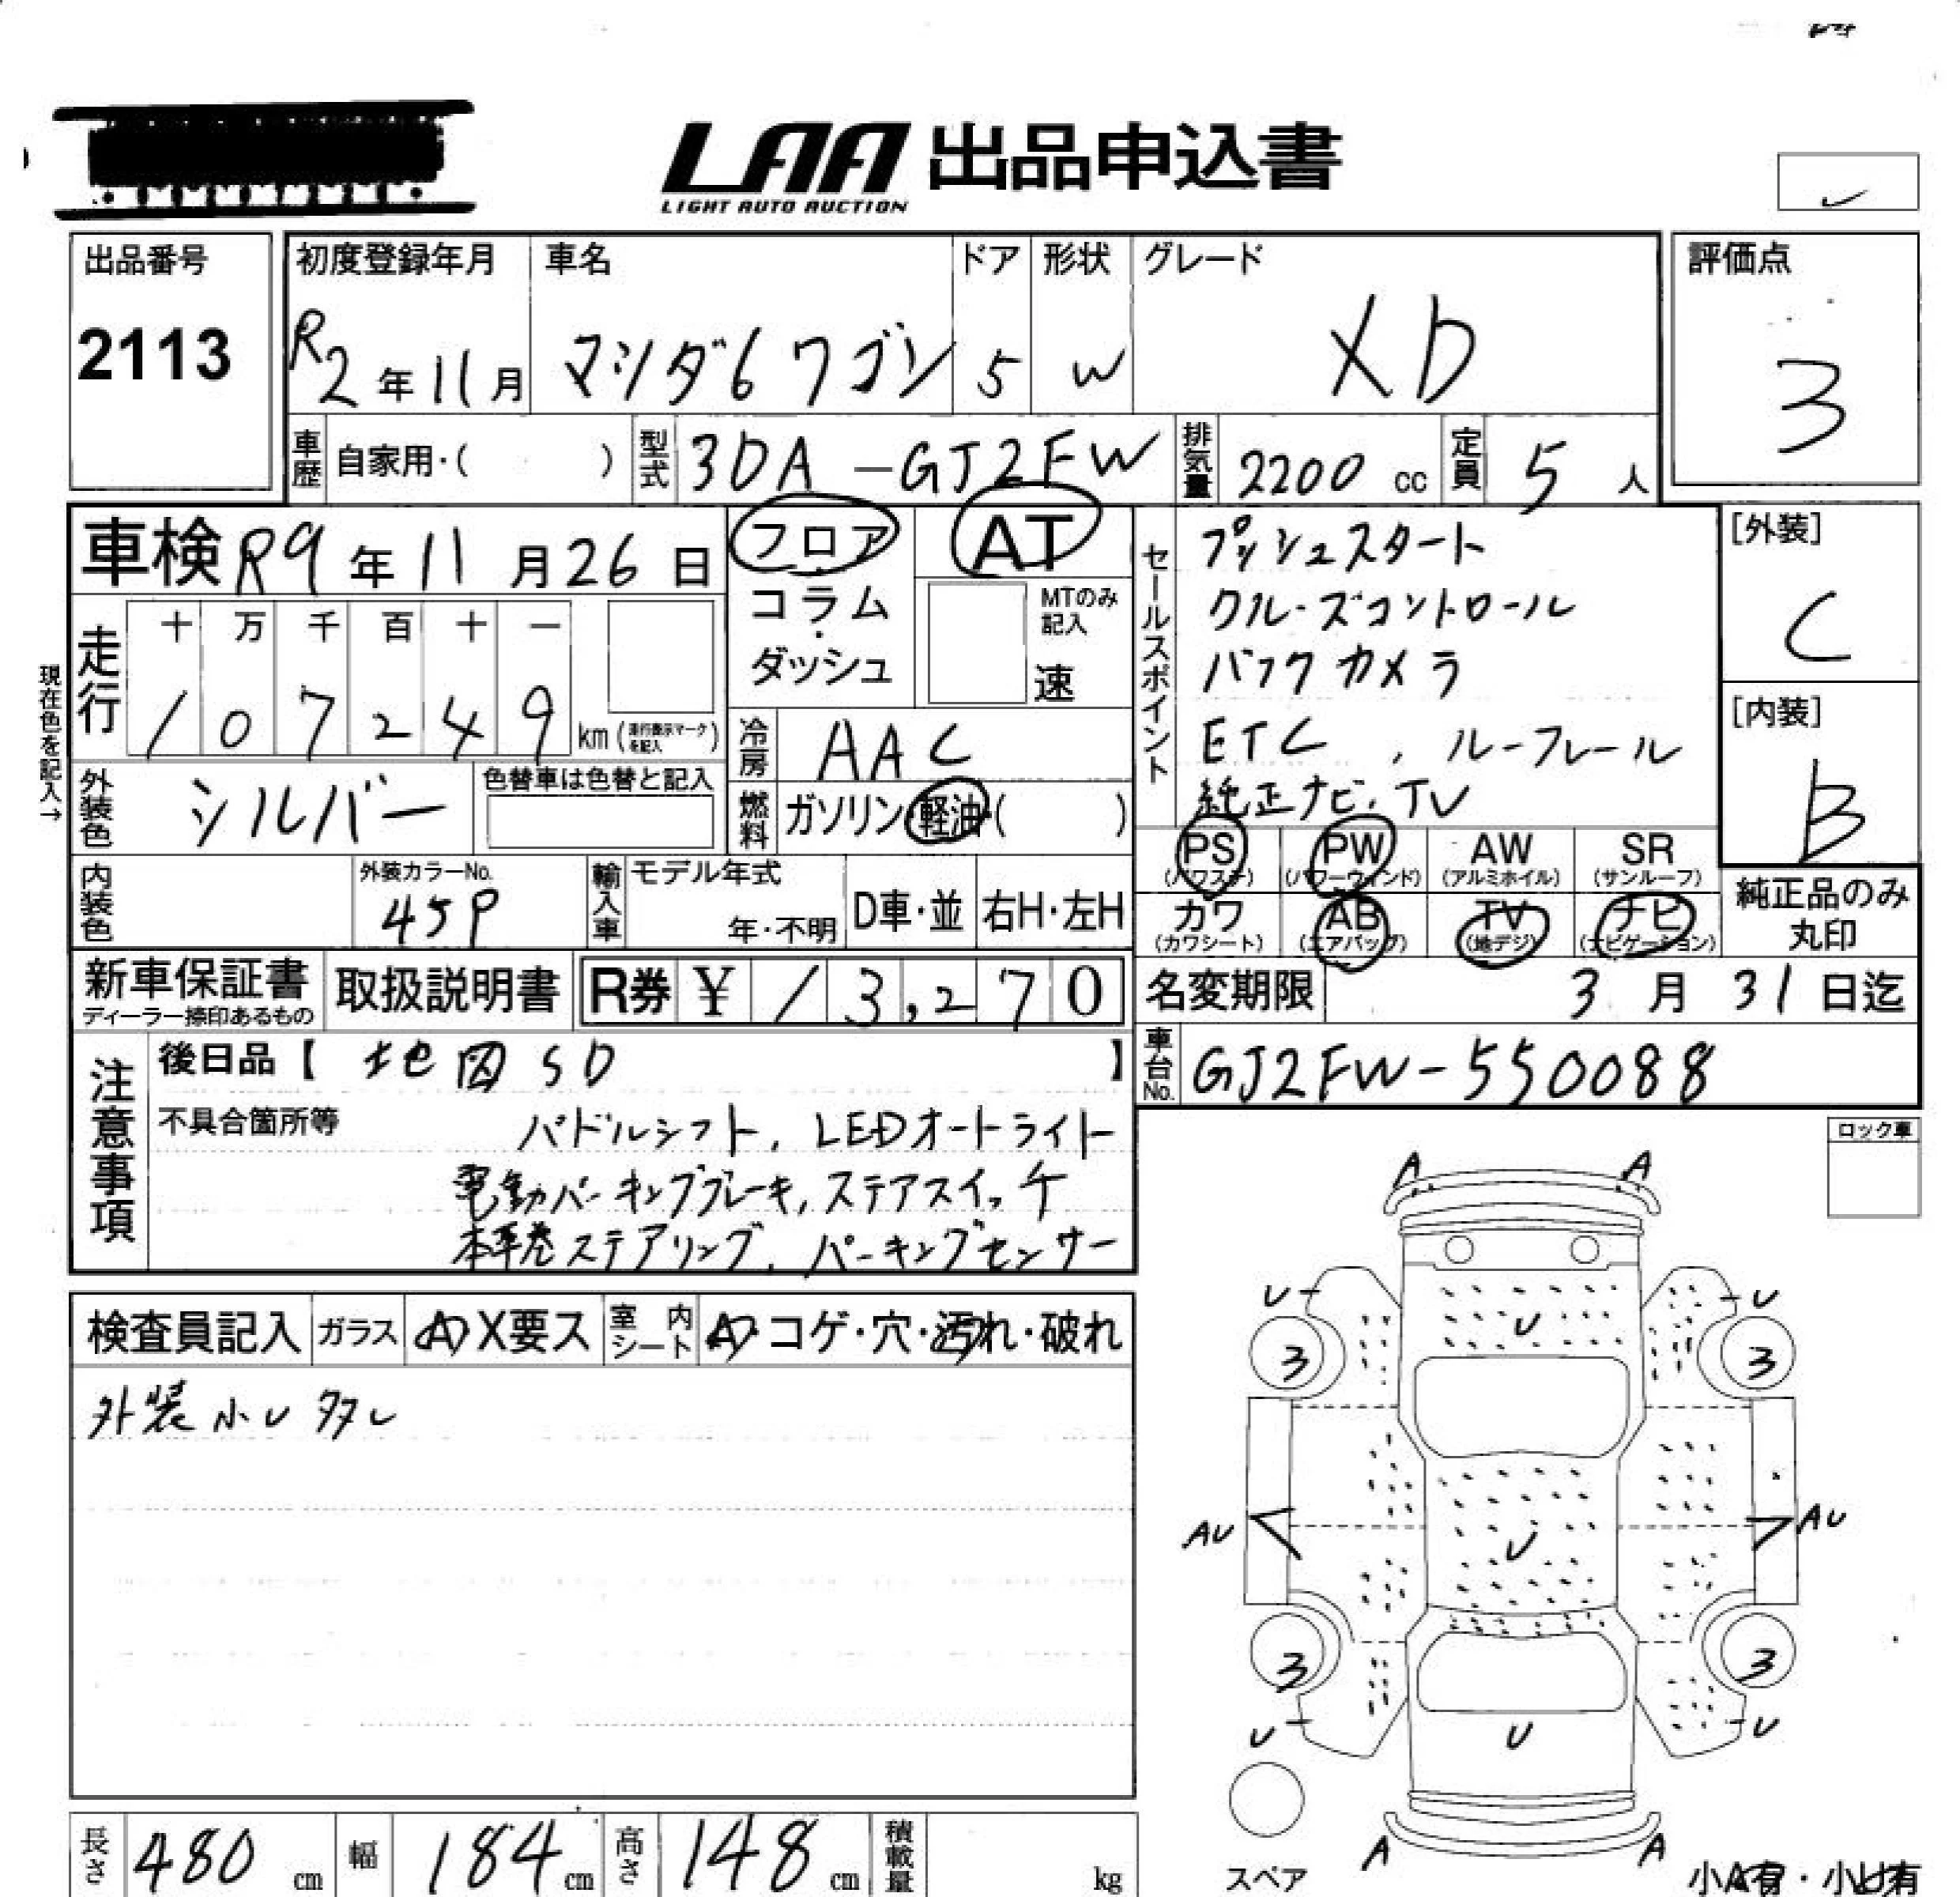 LAA 出品申込書
LIGHT AUTO AUCTION
出品番号
2113
初度登録年月
R2年11月
車名
マツダ6ワゴン
ドア
5
形状
W
グレード
XD
評価点
3
車歴 自家用・( )
型式 3DA-GJ2FW
排気量 2200 cc
定員 5 人
車検 R9年11月26日
フロア・コラム・ダッシュ
AT
MTのみ記入
速
走行
十 万 千 百 十 一
1 0 7 2 4 9 km (走行表示マークを記入)
現在色を記入→
冷房 AAC
外装色 シルバー
色替車は色替と記入
燃料 ガソリン・軽油・( )
内装色
外装カラーNo.
45P
輸入車
モデル年式
年・不明
D車・並
右H・左H
セールスポイント
プッシュスタート
クルーズコントロール
バックカメラ
ETC , ルーフレール
純正ナビ・TV
[外装]
C
[内装]
B
PS (パワステ)
PW (パワーウィンド)
AW (アルミホイル)
SR (サンルーフ)
カワ (カワシート)
AB (エアバッグ)
TV (地デジ)
ナビ (ナビゲーション)
純正品のみ
丸印
新車保証書
ディーラー捺印あるもの
取扱説明書
R券 ¥ 13,270
名変期限 3月31日迄
車台No. GJ2FW-550088
注意事項
後日品【 地図SD 】
不具合箇所等
パドルシフト, LEDオートライト
電動パーキングブレーキ, ステアスイッチ
本革巻ステアリング, パーキングセンサー
ロック車
検査員記入
ガラス A・X要ス
室内シート A・コゲ・穴・汚れ・破れ
外装小U多し
A A
U U
U
3 3
AU AU
U
3 3
U U
U
A A
スペア
小A有・小U有
長さ 480 cm
幅 184 cm
高さ 148 cm
積載量 kg